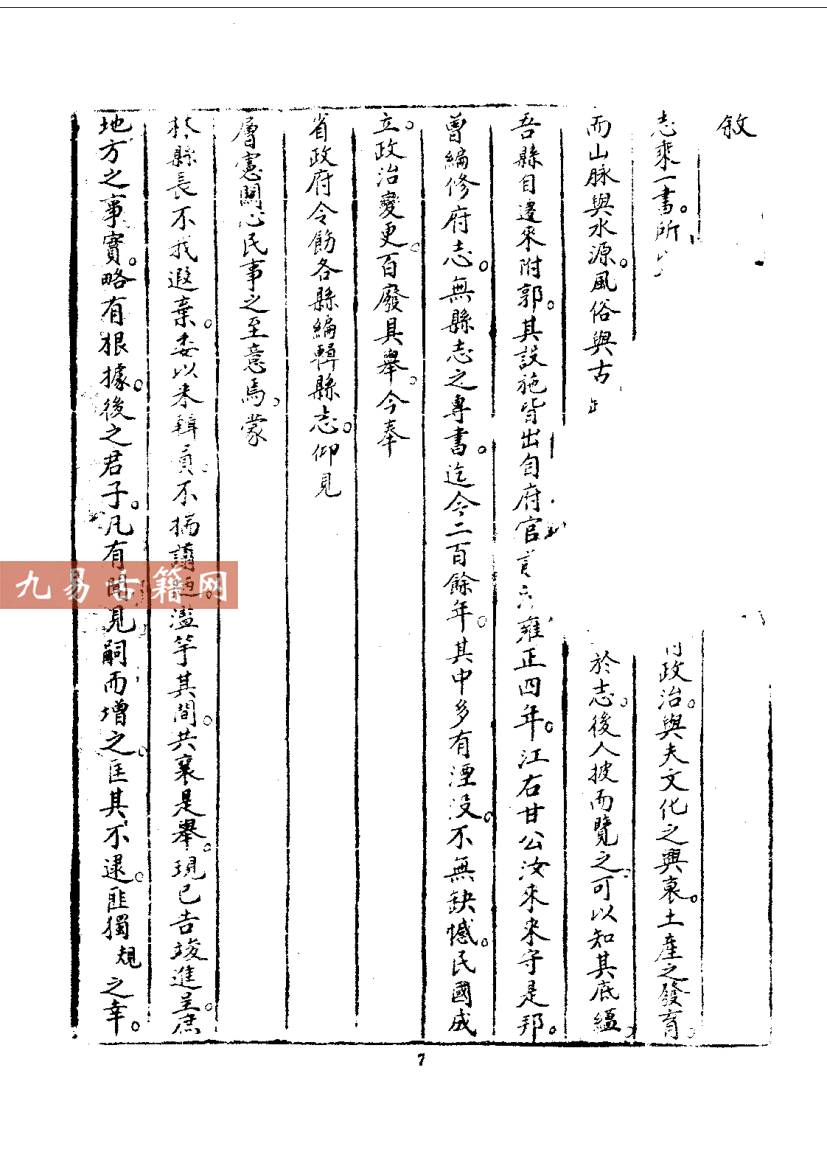 敘
志乘一書。所
政治。與夫文化之興衰。土產之發育
而山脉與水源。風俗與古
於志。後人披而覽之。可以知其底縕
吾縣自遷來附郭。其設施皆出自府官
雍正四年。江右甘公汝來來守是邦。
曾編修府志。無縣志之專書。迄今二百餘年。其中多有湮没。不無缺憾。民國成
立。政治變更。百廢具舉。今奉
省政府令飭各縣編輯縣志。仰見
層憲關心民事之至意焉。蒙
縣長不我遐棄。委以采輯員。不揣譾
濫竽其間。共襄是舉。現已告竣進呈。庶
地方之事實。略有根據。後之君子。凡有聞見。嗣而增之。匡其不逮。匪獨 覌 之幸。
九易古籍网
7